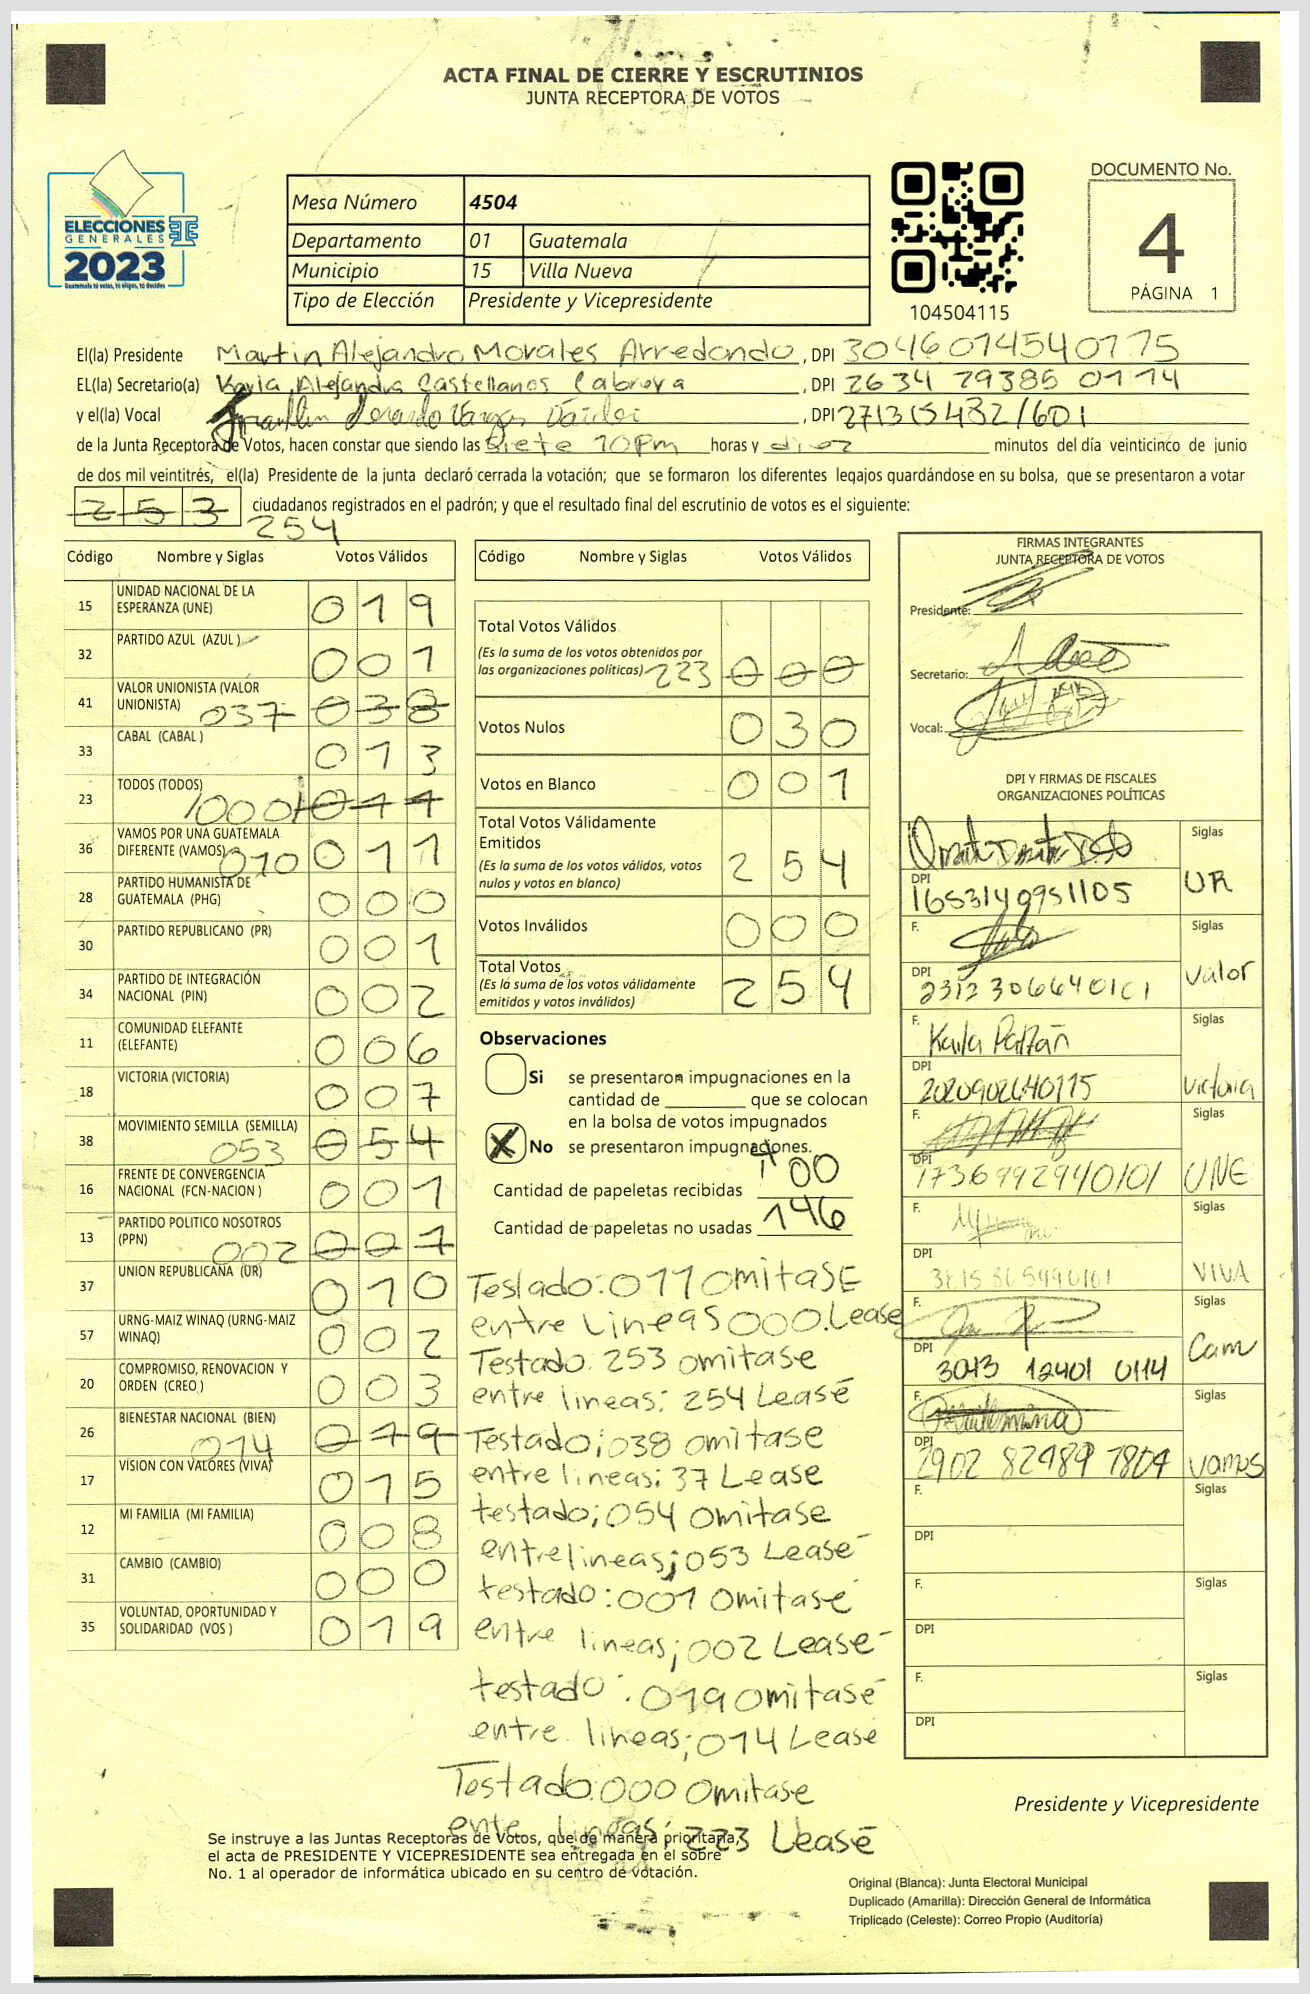 ACTA FINAL DE CIERRE Y ESCRUTINIOS
JUNTA RECEPTORA DE VOTOS
ELECCIONES
GENERALES
2023
Guatemala tú votas, tú eliges, tú decides
Mesa Número 4504
Departamento 01 Guatemala
Municipio 15 Villa Nueva
Tipo de Elección Presidente y Vicepresidente
104504115
DOCUMENTO No.
4
PÁGINA 1
El(la) Presidente Martin Alejandro Morales Arredondo, DPI 3046014540115
EL(la) Secretario(a) Karla Alejandra Castellanos Cabrera, DPI 2634 29385 0114
y el(la) Vocal Franklin Vargas, DPI 271315482/601
de la Junta Receptora de Votos, hacen constar que siendo las Siete 10Pm horas y diez minutos del día veinticinco de junio
de dos mil veintitrés, el(la) Presidente de la junta declaró cerrada la votación; que se formaron los diferentes legajos guardándose en su bolsa, que se presentaron a votar
253 ciudadanos registrados en el padrón; y que el resultado final del escrutinio de votos es el siguiente:
254
Código Nombre y Siglas Votos Válidos
15 UNIDAD NACIONAL DE LA ESPERANZA (UNE) 019
32 PARTIDO AZUL (AZUL ) 001
41 VALOR UNIONISTA (VALOR UNIONISTA) 037 038
33 CABAL (CABAL ) 013
23 TODOS (TODOS) 000 011
36 VAMOS POR UNA GUATEMALA DIFERENTE (VAMOS) 010 011
28 PARTIDO HUMANISTA DE GUATEMALA (PHG) 000
30 PARTIDO REPUBLICANO (PR) 001
34 PARTIDO DE INTEGRACIÓN NACIONAL (PIN) 002
11 COMUNIDAD ELEFANTE (ELEFANTE) 006
18 VICTORIA (VICTORIA) 007
38 MOVIMIENTO SEMILLA (SEMILLA) 053 054
16 FRENTE DE CONVERGENCIA NACIONAL (FCN-NACION ) 001
13 PARTIDO POLITICO NOSOTROS (PPN) 002 001
37 UNION REPUBLICANA (UR) 010
57 URNG-MAIZ WINAQ (URNG-MAIZ WINAQ) 002
20 COMPROMISO, RENOVACION Y ORDEN (CREO ) 003
26 BIENESTAR NACIONAL (BIEN) 014 019
17 VISION CON VALORES (VIVA) 015
12 MI FAMILIA (MI FAMILIA) 008
31 CAMBIO (CAMBIO) 000
35 VOLUNTAD, OPORTUNIDAD Y SOLIDARIDAD (VOS ) 019
Código Nombre y Siglas Votos Válidos
Total Votos Válidos
(Es la suma de los votos obtenidos por
las organizaciones políticas) 223 000
Votos Nulos 030
Votos en Blanco 001
Total Votos Válidamente
Emitidos
(Es la suma de los votos válidos, votos
nulos y votos en blanco) 254
Votos Inválidos 000
Total Votos
(Es la suma de los votos válidamente
emitidos y votos inválidos) 254
Observaciones
Si se presentaron impugnaciones en la
cantidad de ________ que se colocan
en la bolsa de votos impugnados
X No se presentaron impugnaciones.
Cantidad de papeletas recibidas 400
Cantidad de papeletas no usadas 146
Testado: 011 OMITASE
entre Lineas 000. Lease
Testado: 253 omitase
entre lineas: 254 Leasé
Testado; 038 omitase
entre lineas: 37 Lease
testado; 054 Omitase
entre lineas; 053 Lease
testado: 001 Omitasé
entre lineas; 002 Lease
testado: 019 Omitasé
entre lineas; 014 Lease
Testado: 000 Omitase
ente lineas; 223 Leasé
FIRMAS INTEGRANTES
JUNTA RECEPTORA DE VOTOS
Presidente:
Secretario:
Vocal:
DPI Y FIRMAS DE FISCALES
ORGANIZACIONES POLÍTICAS
Siglas
DPI 1653149951105 UR
F. Siglas
DPI 2312306640101 Valor
F. Karla Siglas
DPI 2020902640115 Victoria
F. Siglas
DPI 1736992940101 UNE
F. Siglas
DPI VIVA
F. Siglas
DPI 3043 12401 0114 Cam
F. Siglas
DPI 2902 82989 1804 Vamos
F. Siglas
DPI
F. Siglas
DPI
F. Siglas
DPI
Presidente y Vicepresidente
Se instruye a las Juntas Receptoras de Votos, que de manera prioritaria,
el acta de PRESIDENTE Y VICEPRESIDENTE sea entregada en el sobre
No. 1 al operador de informática ubicado en su centro de votación.
Original (Blanca): Junta Electoral Municipal
Duplicado (Amarilla): Dirección General de Informática
Triplicado (Celeste): Correo Propio (Auditoría)